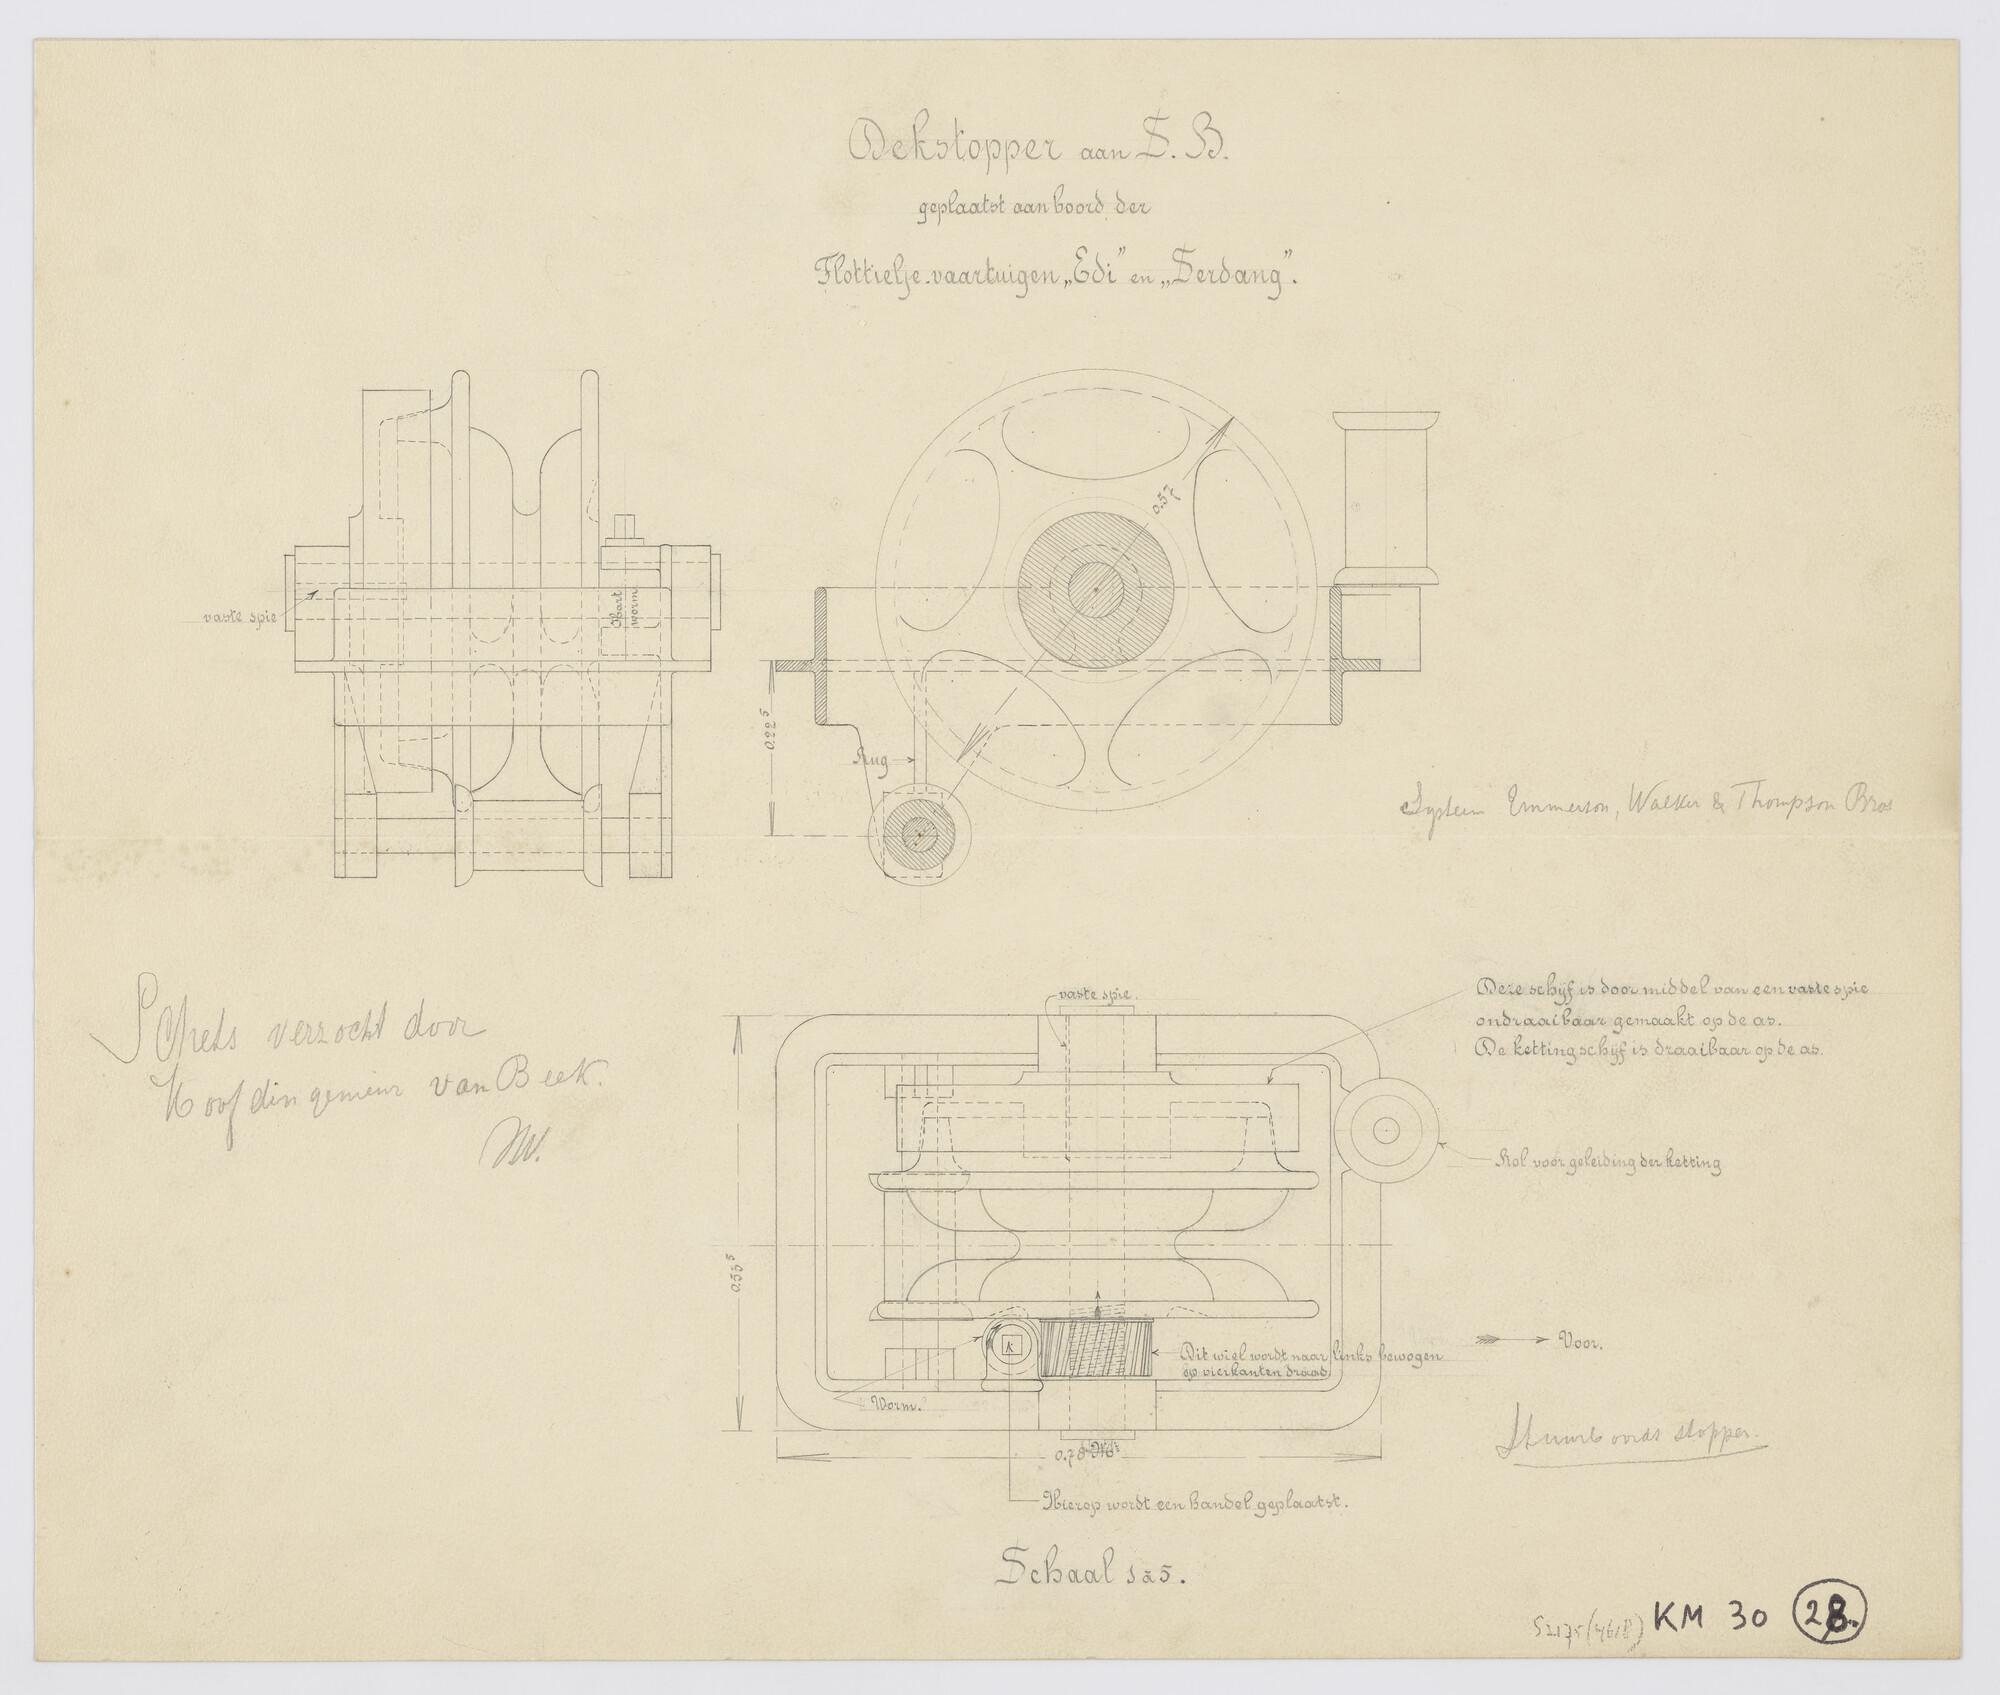 Dekstopper aan S. B.
geplaatst aan boord der
Flottielje-vaartuigen „Edi” en „Serdang”.
vaste spie
Hart
worm
0.57
0.22⁵
Rug
System Emmerson, Walker & Thompson Bros
Schets verzocht door
Hoofdingenieur van Beek.
vaste spie.
Deze schijf is door middel van een vaste spie
ondraaibaar gemaakt op de as.
De kettingschijf is draaibaar op de as.
Rol voor geleiding der ketting
0.53⁵
k
Dit wiel wordt naar links bewogen
op vierkanten draad
Voor.
Worm.
0.78
Stuurboords stopper.
Hierop wordt een handel geplaatst.
Schaal 1 à 5.
KM 30 28.